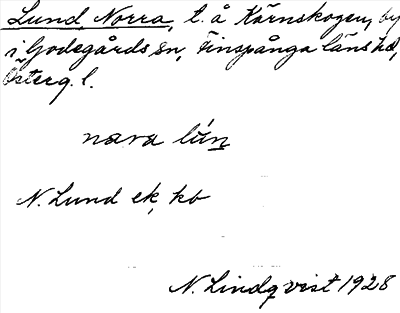 Lund, Norra, t. å Kärnskogen, by
i Godegårds sn, Finspånga läns hd,
Österg. l.
nara lún
N. Lund ek, kb
N. Lindqvist 1928